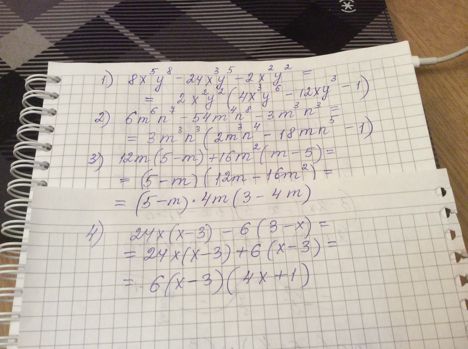 1) 8x⁵y⁸ - 24x³y⁵ - 2x²y² =
= 2x²y²(4x³y⁶ - 12xy³ - 1)
2) 6m⁶n⁷ - 54m⁴n⁸ - 3m³n³ =
= 3m³n³(2m³n⁴ - 18mn⁵ - 1)
3) 12m(5-m) + 16m²(m-5) =
= (5-m)(12m - 16m²) =
= (5-m)·4m(3-4m)
4) 24x(x-3) - 6(3-x) =
= 24x(x-3) + 6(x-3) =
= 6(x-3)(4x+1)